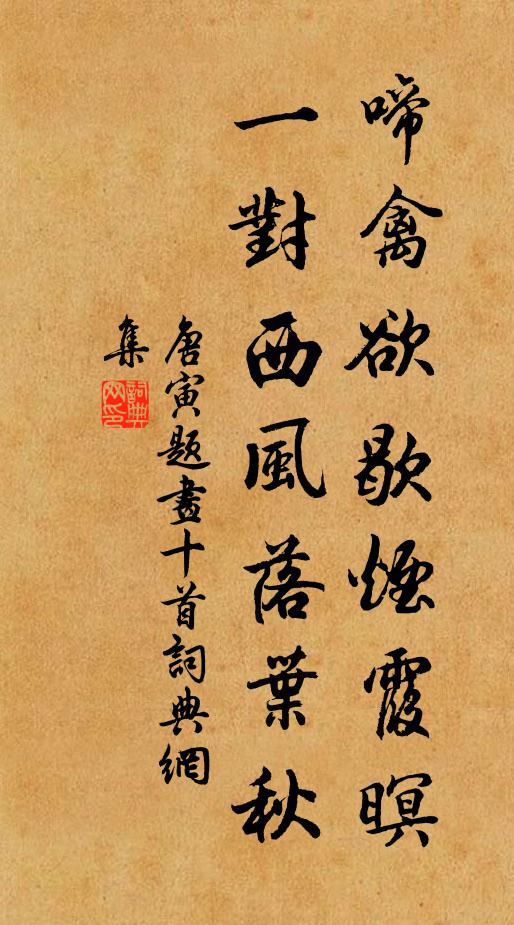 啼禽欲歇煙霞暝
一對西風落葉秋
唐寅題畫十首詞典網
集
詞典
网印